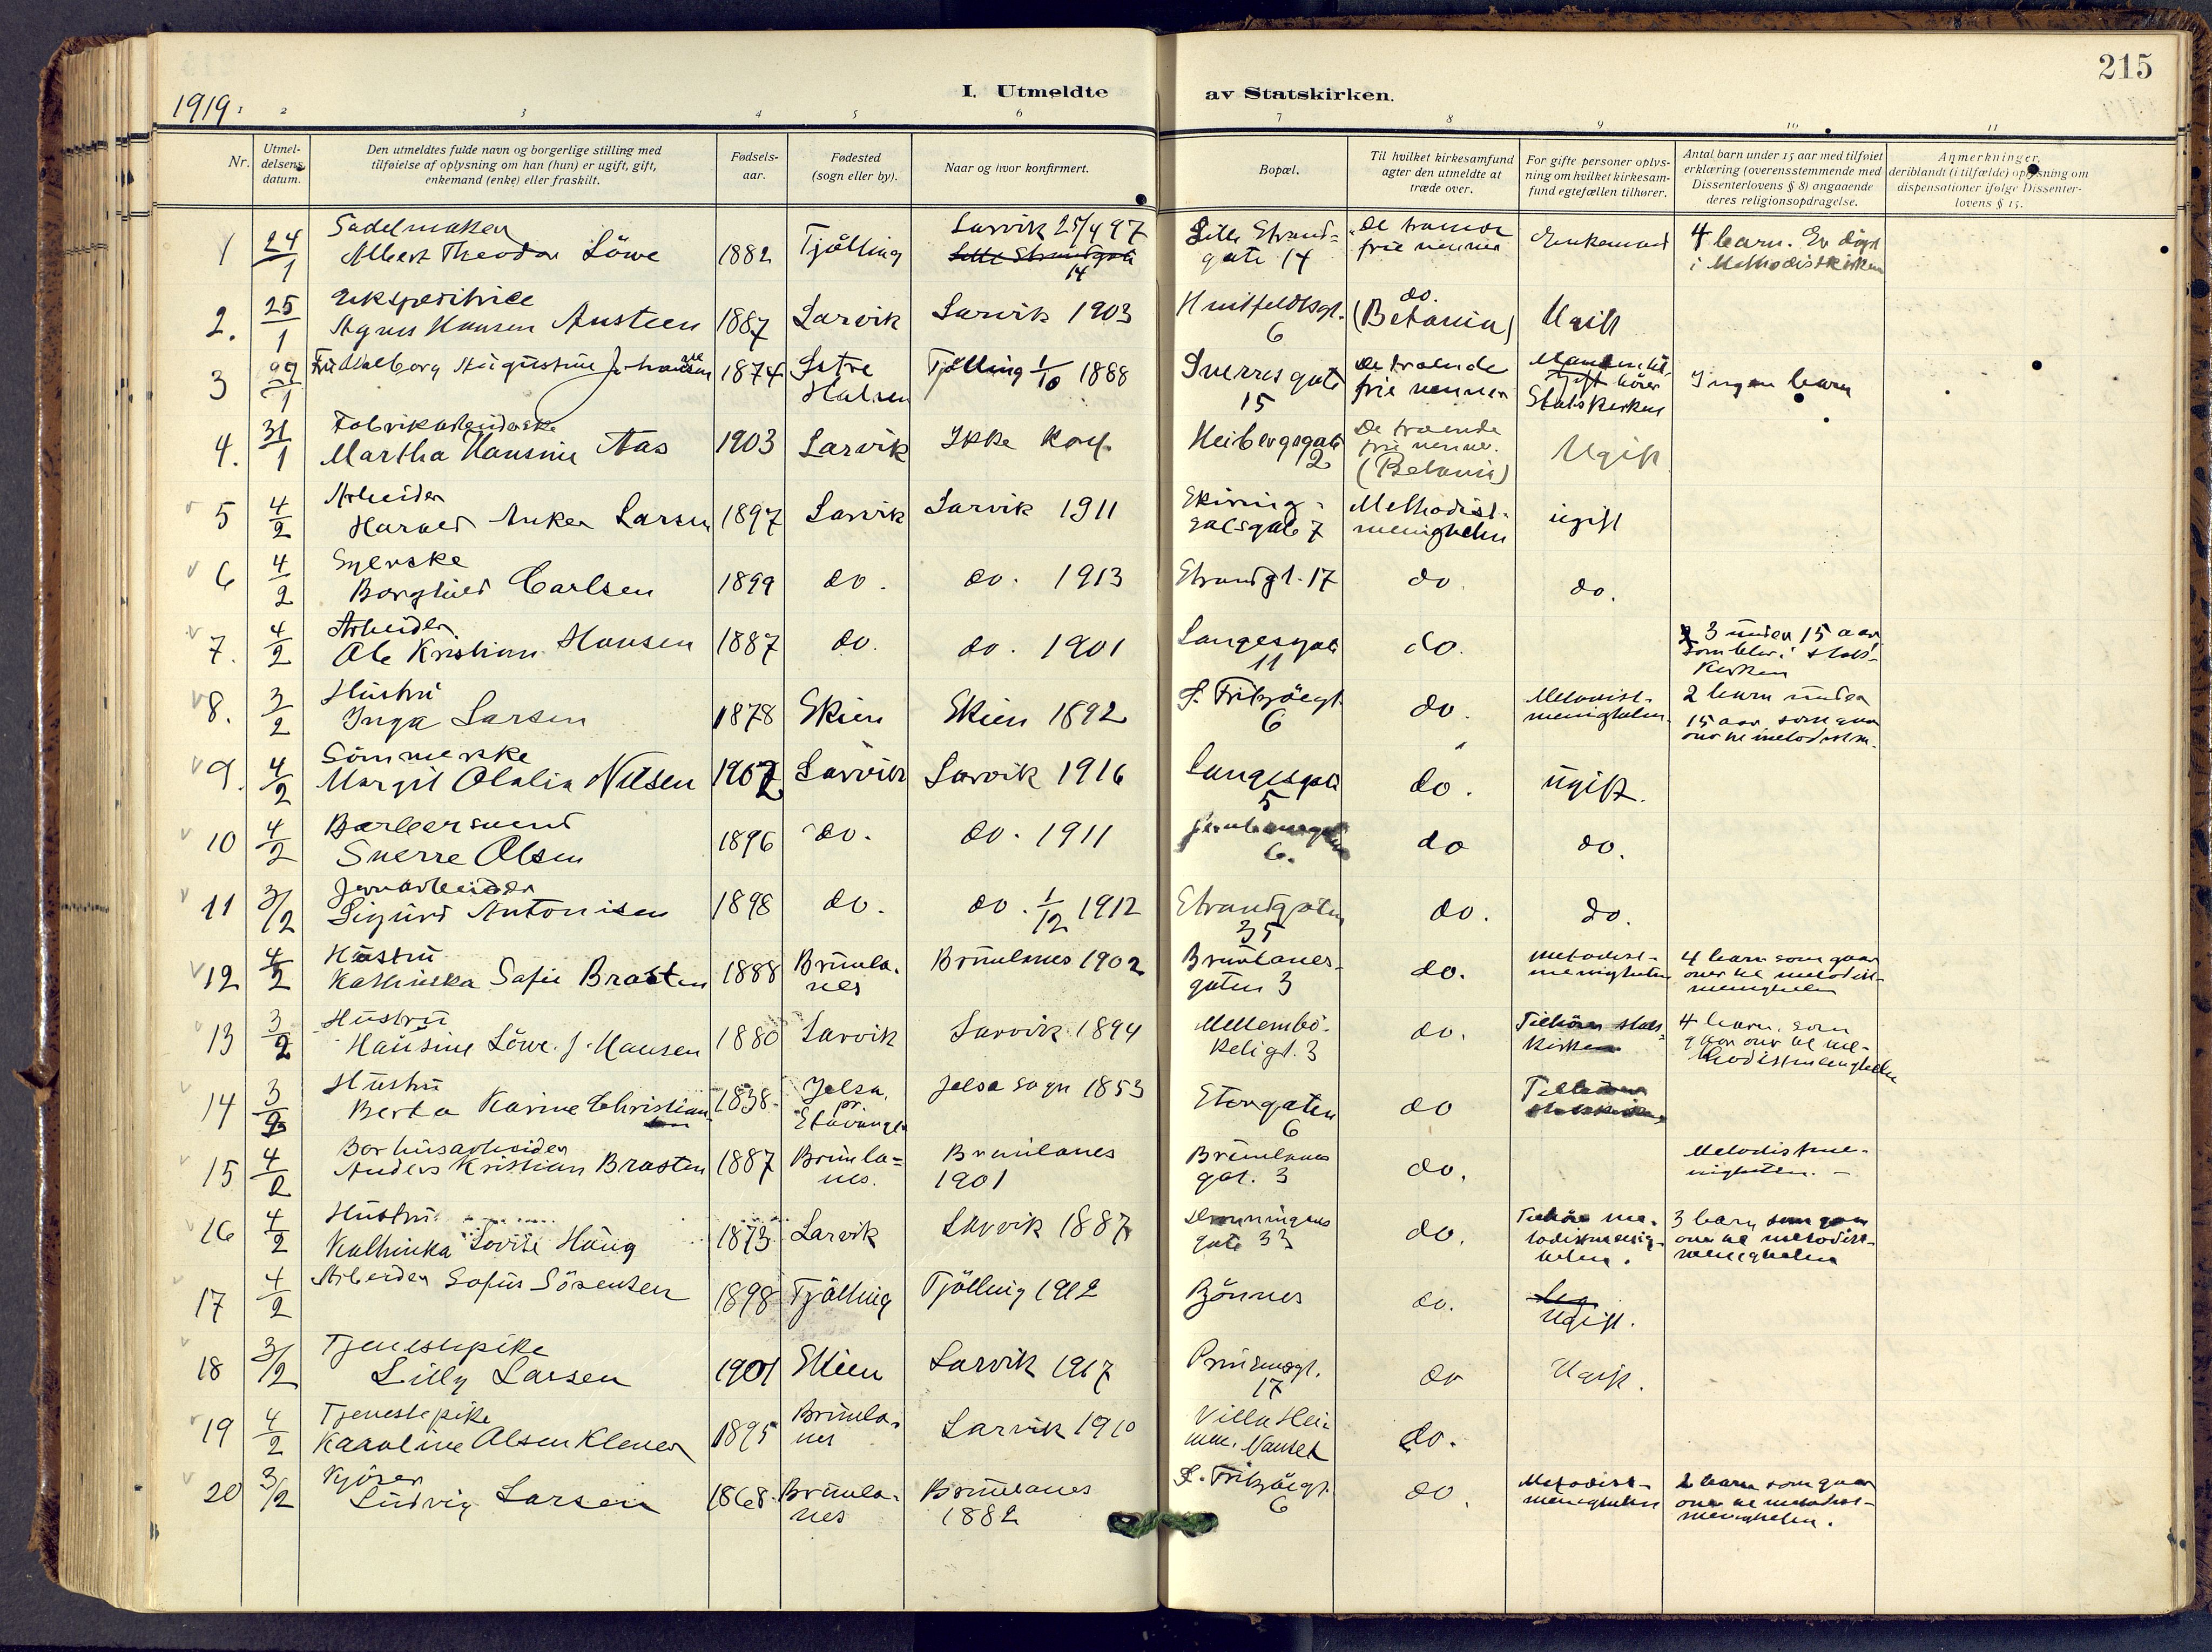 215
1919.
I. Utmeldte av Statskirken.
1 2 3 4 5 6 7 8 9 10 11
Nr.
Utmeldelsens datum.
Den utmeldtes fulde navn og borgerlige stilling med
tilføielse af oplysning om han (hun) er ugift, gift,
enkemand (enke) eller fraskilt.
Fødselsaar.
Fødested
(sogn eller by).
Naar og hvor konfirmert.
Bopæl.
Til hvilket kirkesamfund
agter den utmeldte at
træde over.
For gifte personer oplys-
ning om hvilket kirkesam-
fund egtefællen tilhører.
Antal barn under 15 aar med tilføiet
erklæring (overensstemmende med
Dissenterlovens § 8) angaaende
deres religionsopdragelse.
Anmerkninger,
deriblandt (i tilfælde) oplysning om
dispensationer ifølge Dissenter-
lovens § 15.
1 24/1 Sadelmaker Albert Theodor Löwe 1882 Tjölling Larvik 25/4 97 Lille Strandgate 14 Lille Strand=gate 14 De troende frie venner Enkemand 4 barn. Er døpt i Methodistkirken
2. 25/1 Ekspeditrice Agnes Hansen Austeen 1887 Larvik Larvik 1903 Huitfeldtsgt. 6 do. (Betania) Ugift
3 29/1 Fru Valborg Augustine Johansen 1874 Østre Halsen Tjölling 1/10 1888 Sverresgate 15 De troende frie venner Statskirken Ingen barn
4. 31/1 Fabrikarbeiderske Martha Hansine Aas 1903 Larvik Ikke konf. Heibergsgate 2 De troende frie venner. (Betania) Ugift
5 4/2 Arbeider Harald Anker Larsen 1897 Larvik Larvik 1911 Skiringsalsgate 7 Methodist-menigheten ugift
6 4/2 Syerske Borghild Carlsen 1899 do. do. 1913 Strandgt. 17 do. do.
7. 4/2 Arbeider Ole Kristian Hansen 1887 do. do. 1901 Langesgate 11 do. 3 under 15 aar som blir i stats-kirken
8. 3/2 Hustru Inga Larsen 1878 Skien Skien 1892 S. Fritzöegt. 6 do. Metodist-menigheten 2 barn under 15 aar som gaar over til metodistm.
9. 4/2 Sömmerske Margit Olalia Nilsen 1902 Larvik Larvik 1916 Langesgate 5 do. ugift.
10 4/2 Barbersvend Sverre Olsen 1896 do. do. 1911 6. do do.
11 3/2 Jernarbeider Sigurd Antonisen 1898 do. do. 1/12 1912 Strandgaten 35 do. do.
12 4/2 Hustru Kathinka Sofie Braaten 1888 Brunla-nes Brunlanes 1902 Brunlanes-gaten 3 do. Metodist-menigheten 4 barn som gaar over til metodist-menigheten
13 3/2 Hustru Hansine Löwe f. Hansen 1880 Larvik Larvik 1894 Mellembö-keligt. 3 do. Tilhörer stats-kirken 4 barn, som gaar over til me-thodistmenigheten
14 3/2 Hustru Berta Karine Christian-sen 1838 Jelsa, pr. Stavanger Jelsa sogn 1853 Storgaten 6 do Tilhörer statskirken
15 4/2 Anders Kristian Braaten 1887 Brunla=nes. Brunlanes 1901 Brunlanes gat. 3 do. Metodistme-nigheten. -
16 4/2 Hustru Kathinka Lovise Haug 1873 Larvik Larvik 1887 Dronningens gate 33 do. Tilhörer me-todistmenig-heten. 3 barn som gaar over til metodist-menigheten
17 4/2 Arbeider Sofus Sörensen 1898 Tjölling Tjölling 1912 Bönnes do. Ugift.
18 3/2 Tjenestepike Lilly Larsen 1901 Skien Larvik 1917 Prinsensgt. 17 do Ugift.
19 4/2 Tjenestepike Karoline Olsen Klever 1895 Brunla-nes Larvik 1910 Villa Hei-men. Nanset do.
20 3/2 Kjörer Ludvig Larsen 1868. Brunla-nes Brunlanes 1882 S. Fritzöegt. 6 do. Metodist-menigheten 2 barn som gaar over til metodist-menigheten.